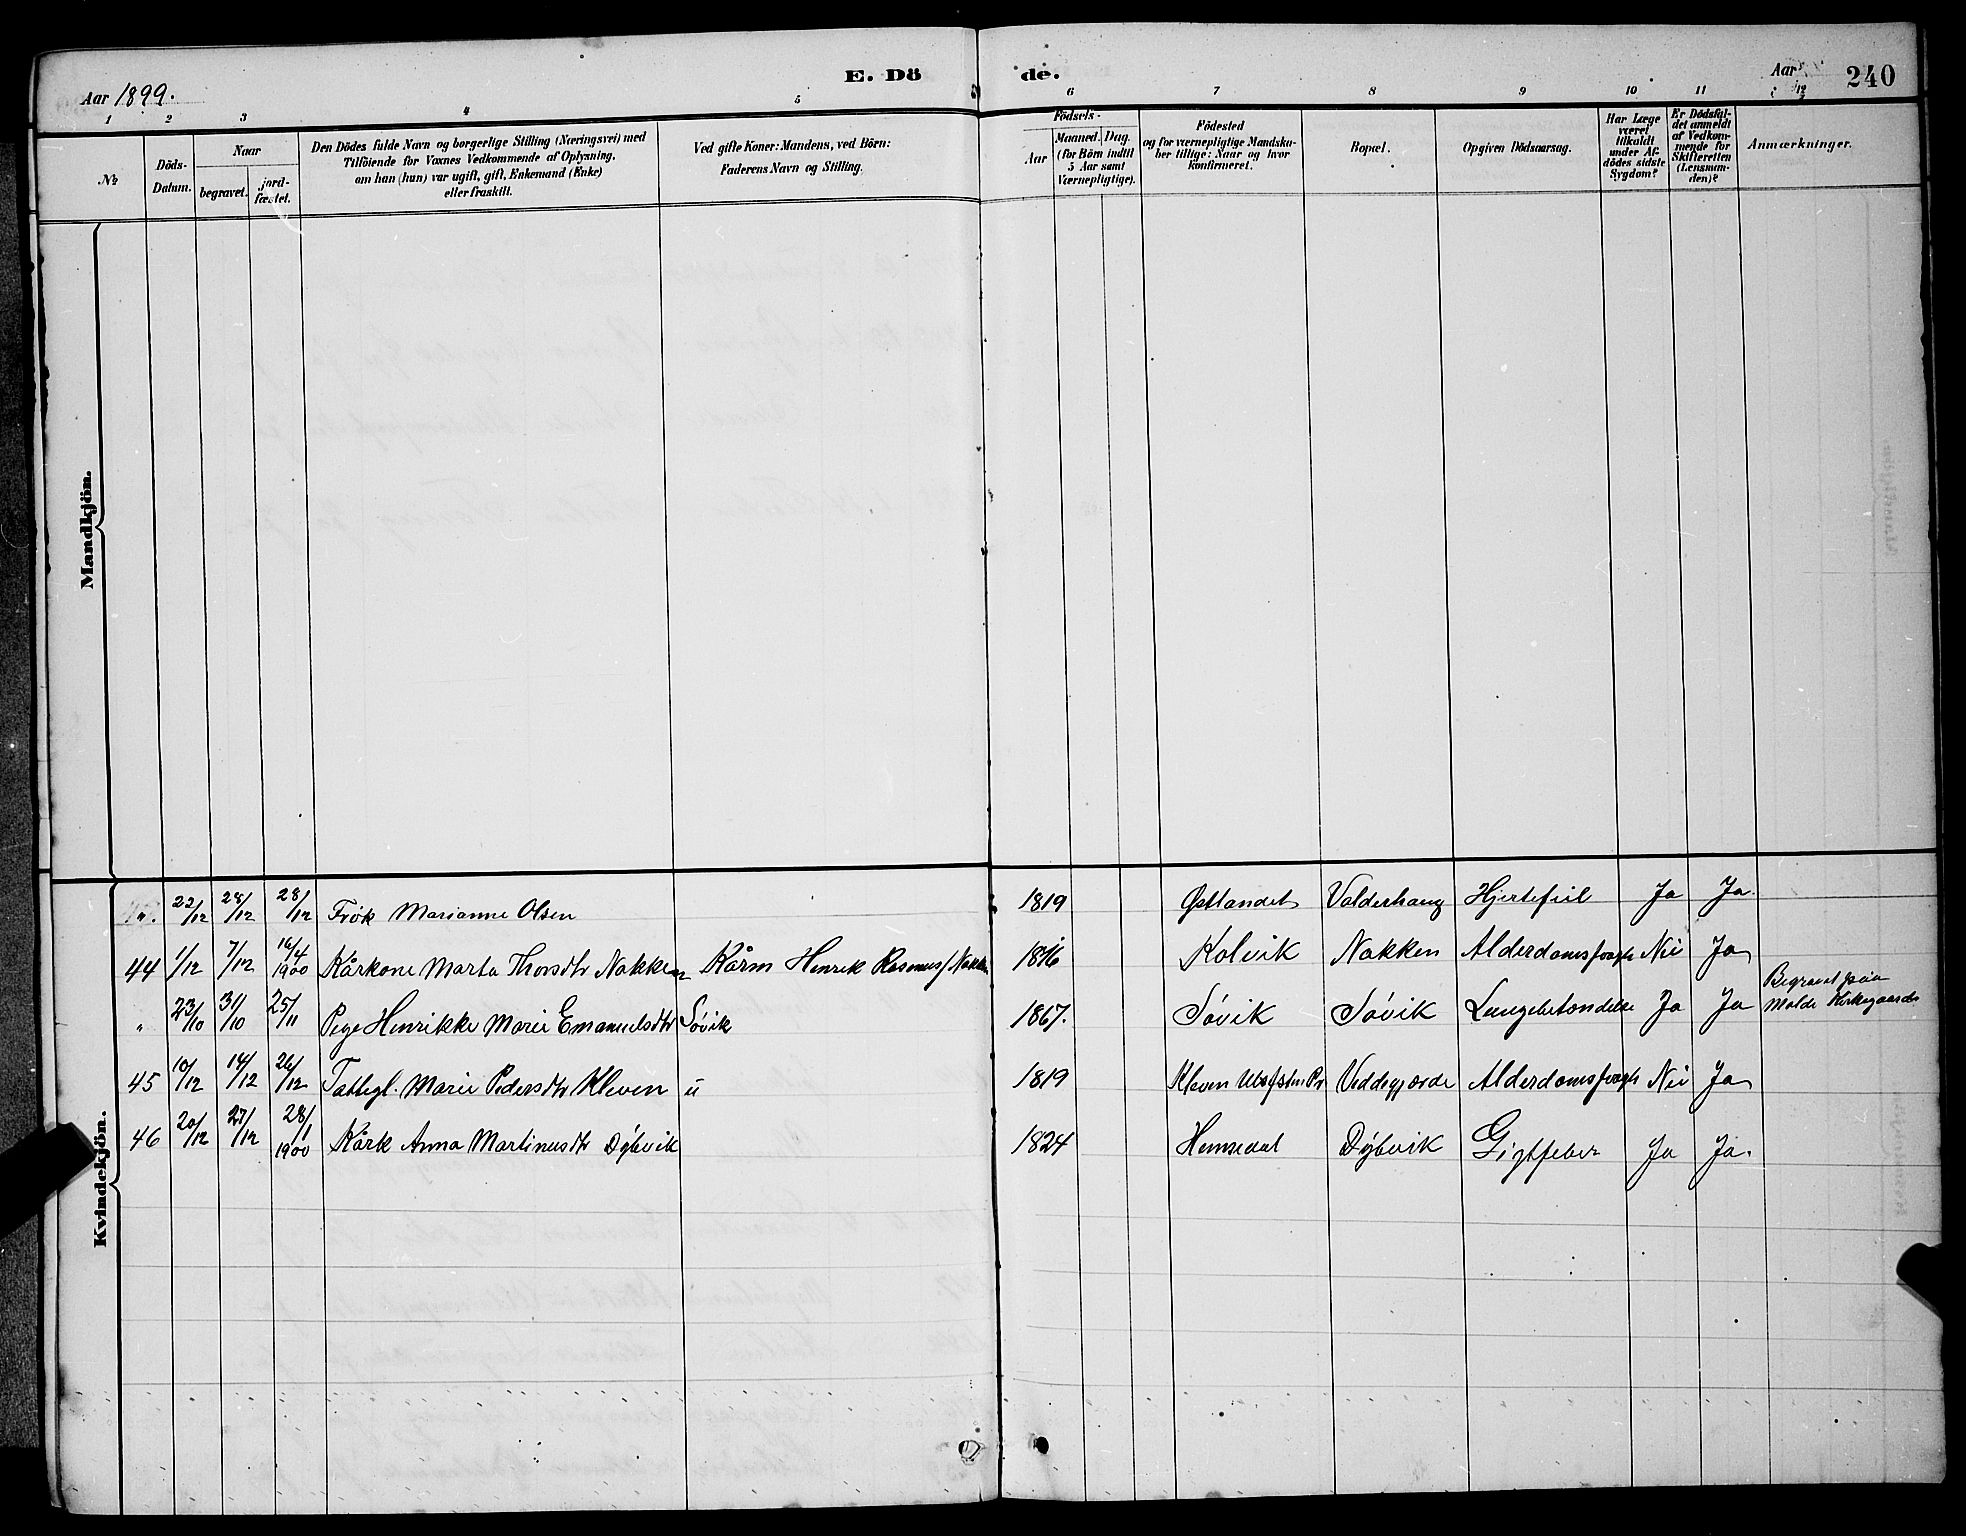 Aar 1899.
E. Dö
de.
Aar
240
1 2 3 4 5 6 7 8 9 10 11 12
№
Döds-
Datum.
Naar
begravet.
jord-
fæstet.
Den Dödes fulde Navn og borgerlige Stilling (Næringsvei) med
Tilföiende for Voxnes Vedkommende af Oplysning,
om han (hun) var ugift, gift, Enkemand (Enke)
eller fraskilt.
Ved gifte Koner: Mandens, ved Börn:
Faderens Navn og Stilling.
Födsels-
Aar
Maaned. Dag.
(for Börn indtil
5 Aar samt
Værnepligtige).
Födested
og for værnepligtige Mandska-
ber tillige: Naar og hvor
konfirmeret.
Bopæl.
Opgiven Dödsaarsag.
Har Læge
været
tilkaldt
under Af-
dödes sidste
Sygdom?
Er Dödsfal-
det anmeldt
af Vedkom-
mende for
Skifteretten
(Lensman-
den)?
Anmærkninger.
Mandkjön.
Kvindekjön.
". 22/12 28/12 28/12 Frök Marianne Olsen 1819 Østlandet Valderhaug Hjertefeil Ja Ja.
44 1/12 7/12 16/4 1900 Kårkone Marta Thorsdtr Nakken Kårm Henrik Rasmus/ Nakken 1816 Kolvik Nakken Nei Ja
" 23/10 31/10 25/11 Pige Henrikke Marie Emanuelsdtr Søvik 1867. Søvik Søvik Lungebetændelse Ja Ja Begravet paa
Molde Kirkegaard
45 10/12 14/12 26/12 Fattigl. Marie Pedersdtr Kleven u 1819 Kleven Nei Ja
46 20/12 27/12 28/1 1900 Kårk Anna Martinusdtr Dybvik 1824 Hemsedal Dybvik Gigtfeber Ja Ja.